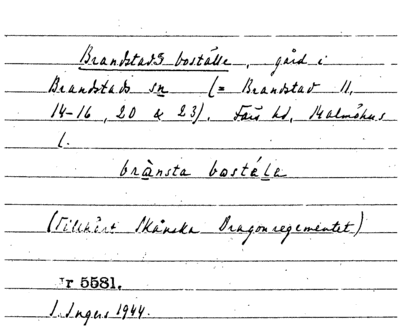 Brandstads boställe, gård i
Brandstads sn (= Brandstad 11,
14-16, 20 & 23). Färs hd, Malmöhus
l.
brànsta bostä́le
(Tillhört Skånska Dragonregementet)
r 5581.
I. Ingers 1944.